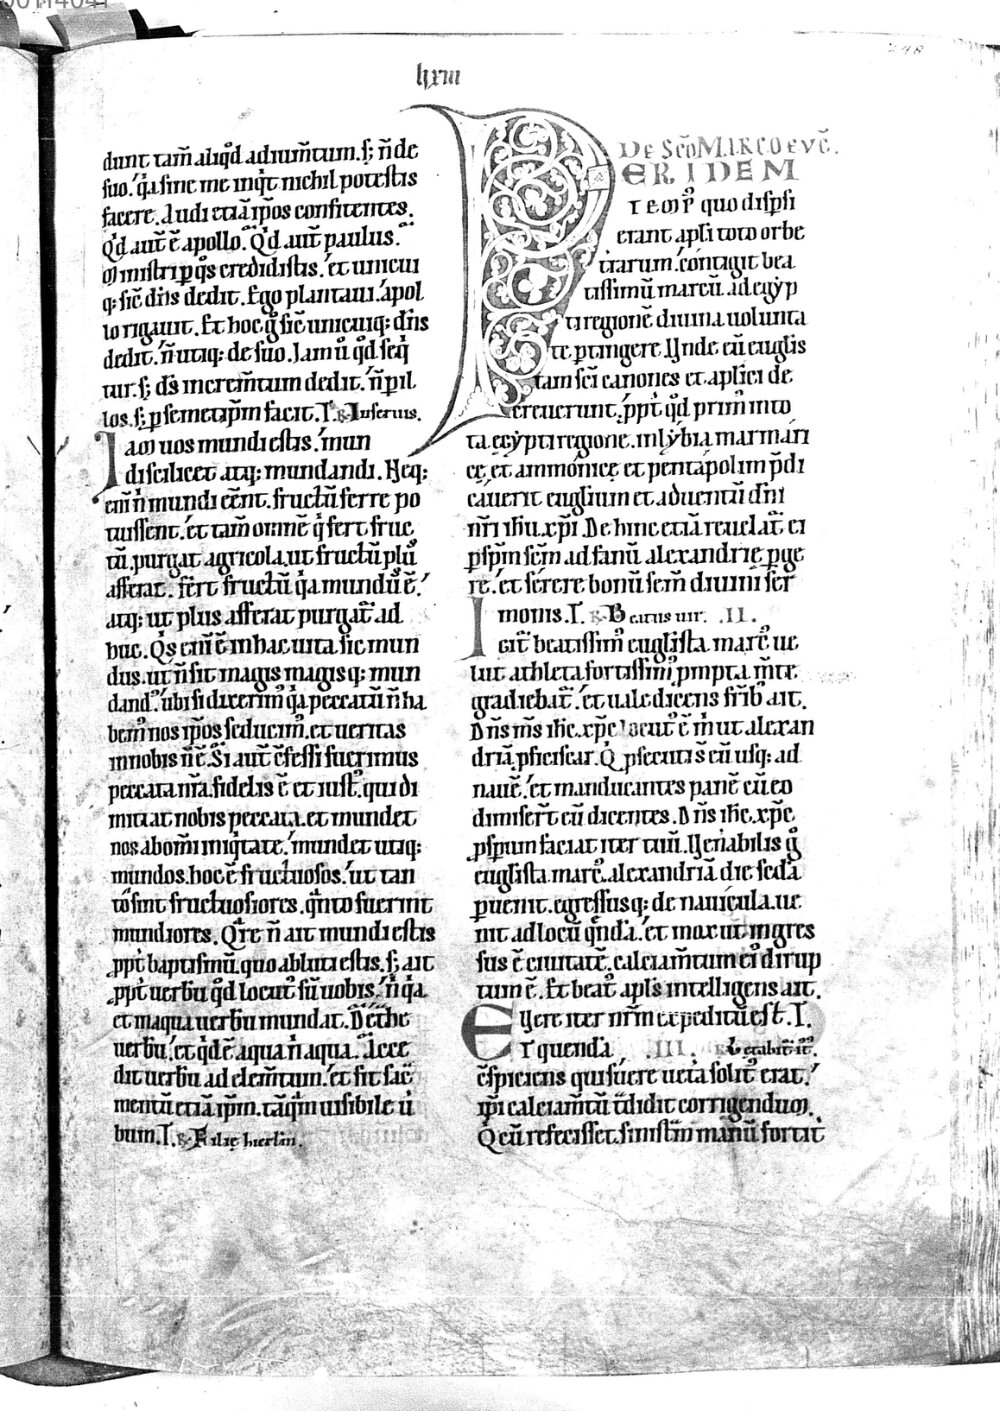 lxiii
248
dunt tam̄ aliq̊d adium̄tum. s; n̄ de
suo. q̓a sine me inq̓t nichil potestis
facere. Audi etiā ip̄os confitentes.
Q̓d aut̄ ē apollo. Q̓d aut̄ paulus.
mīstri p̲ q̊s credidistis. et unicui
q; sic̄ dn̄s dedit. Ego plantaui. apol
lo rigauit. Et hoc ḡ sic̄ unicuiq; dn̄s
dedit. n̄ utiq; de suo. Jam ů q̊d seq̓
tur. s; ds̄ increm̄tum dedit. n̄ p̲ il
los. s; p̲ semetip̄m facit. T. R Inseruis.
Jam uos mundi estis. mun
di scilicet atq; mundandi. Neq;
eni̅ n̄ mundi eēnt. fructū ferre po
tuissent. et tam̄ omnē q̓ fert fruc
tū. purgat agricola. ut fructū plů
afferat. fert fructū q̓a mundū ē.
atq; ut plus afferat purgat̃ ad
huc. Q̓s eni̅ ē in hac uita sic mun
dus. ut n̄ sit magis magisq; mun
dand᷒. ubi si dixerim᷒ q̓a peccatū n̄ ha
bem᷒ nos ip̄os seducim᷒. et ueritas
in nobis n̄ ē. Si aut̄ c̄fessi fuerimus
peccata nr̄a. fidelis ē et iust᷒. qui di
mittat nobis peccata. et mundet
nos ab om̄i iniq̓tate. mundet utiq;
mundos. hoc ē fructuosos. ut tan
tō sint fructuosiores. q̓nto fuerint
mundiores. Q̓re n̄ ait mundi estis
ꝓpt̄ baptismū. quo abluti estis. s; ait
ꝓpt̄ uerbū q̊d locut᷒ sū uobis. n̄ q̓a
et in aqua uerbū mundat. Det̃he
uerbū. et q̓d ē aqua n̄ aqua. Acce
dit uerbū ad elem̄tum. et fit sac̃
mentū etiā ip̄m. tāq̓m uisibile ů
bum. T. R Filię hierl̄m.
DE SCO MARCO EVG̃.
PER IDEM
TEMP᷒ quo dispsi
erant apl̄i toto orbe
terrarum. contigit bea
tissimū marcū. ad egyp
ti regionē diuina uolunta
te p̲tingere. Unde eū euglis
tam sc̄i canones et aplici de
creuerunt. ꝓpt̄ q̊d prim᷒ in to
ta egypti regione. in lybia marmari
cę. et ammonicę et pentapolim p̄di
cauerit euglium et aduentū dn̄i
nr̄i ihū xp̄i. Dehinc etiā reuelat̃ ei
p̲ sp̄m sc̄m ad fanū alexandrię p̲ge
re. et serere bonū sem̄ diuini ser
monis. T. R Beatus uir. .II.
Igit̃ beatissim᷒ euglista marc᷒ ue
lut athleta fortissim᷒ prompta m̄te
gradiebat̃. et uale dicens fr̄ib᷒ ait.
Dn̄s m̄s ihc xp̄c locut᷒ ē m̓ ut alexan
driā ꝓficiscar. Q̓ p̲secuti s̄ eū usq; ad
nauē. et manducantes panē cū eo
dimiser̄t eū dicentes. Dn̄s ihc xp̄c
ꝓsp̲um faciat iter tuū. Uen̄abilis ḡ
euglista marc᷒. alexandriā die sc̄da
p̲uenit. egressusq; de nauicula. ue
nit ad locū q̓ndā. et mox ut ingres
sus ē ciuitatē. calciam̄tum ei dirup
tum ē. Et beat᷒ apl̄s intelligens ait.
Uere iter nr̄m expeditū est. T.
Et quendā .III. R Letabit̃ it᷒.
c̄spiciens qui suere ueta solit᷒ erat.
ip̄i calciam̄tū t̄didit corrigendum.
Q̓ cū refecisset. sinistrā manū fortit̃